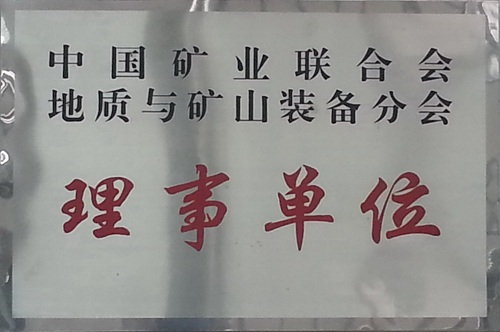 中国矿业联合会
地质与矿山装备分会
理事单位